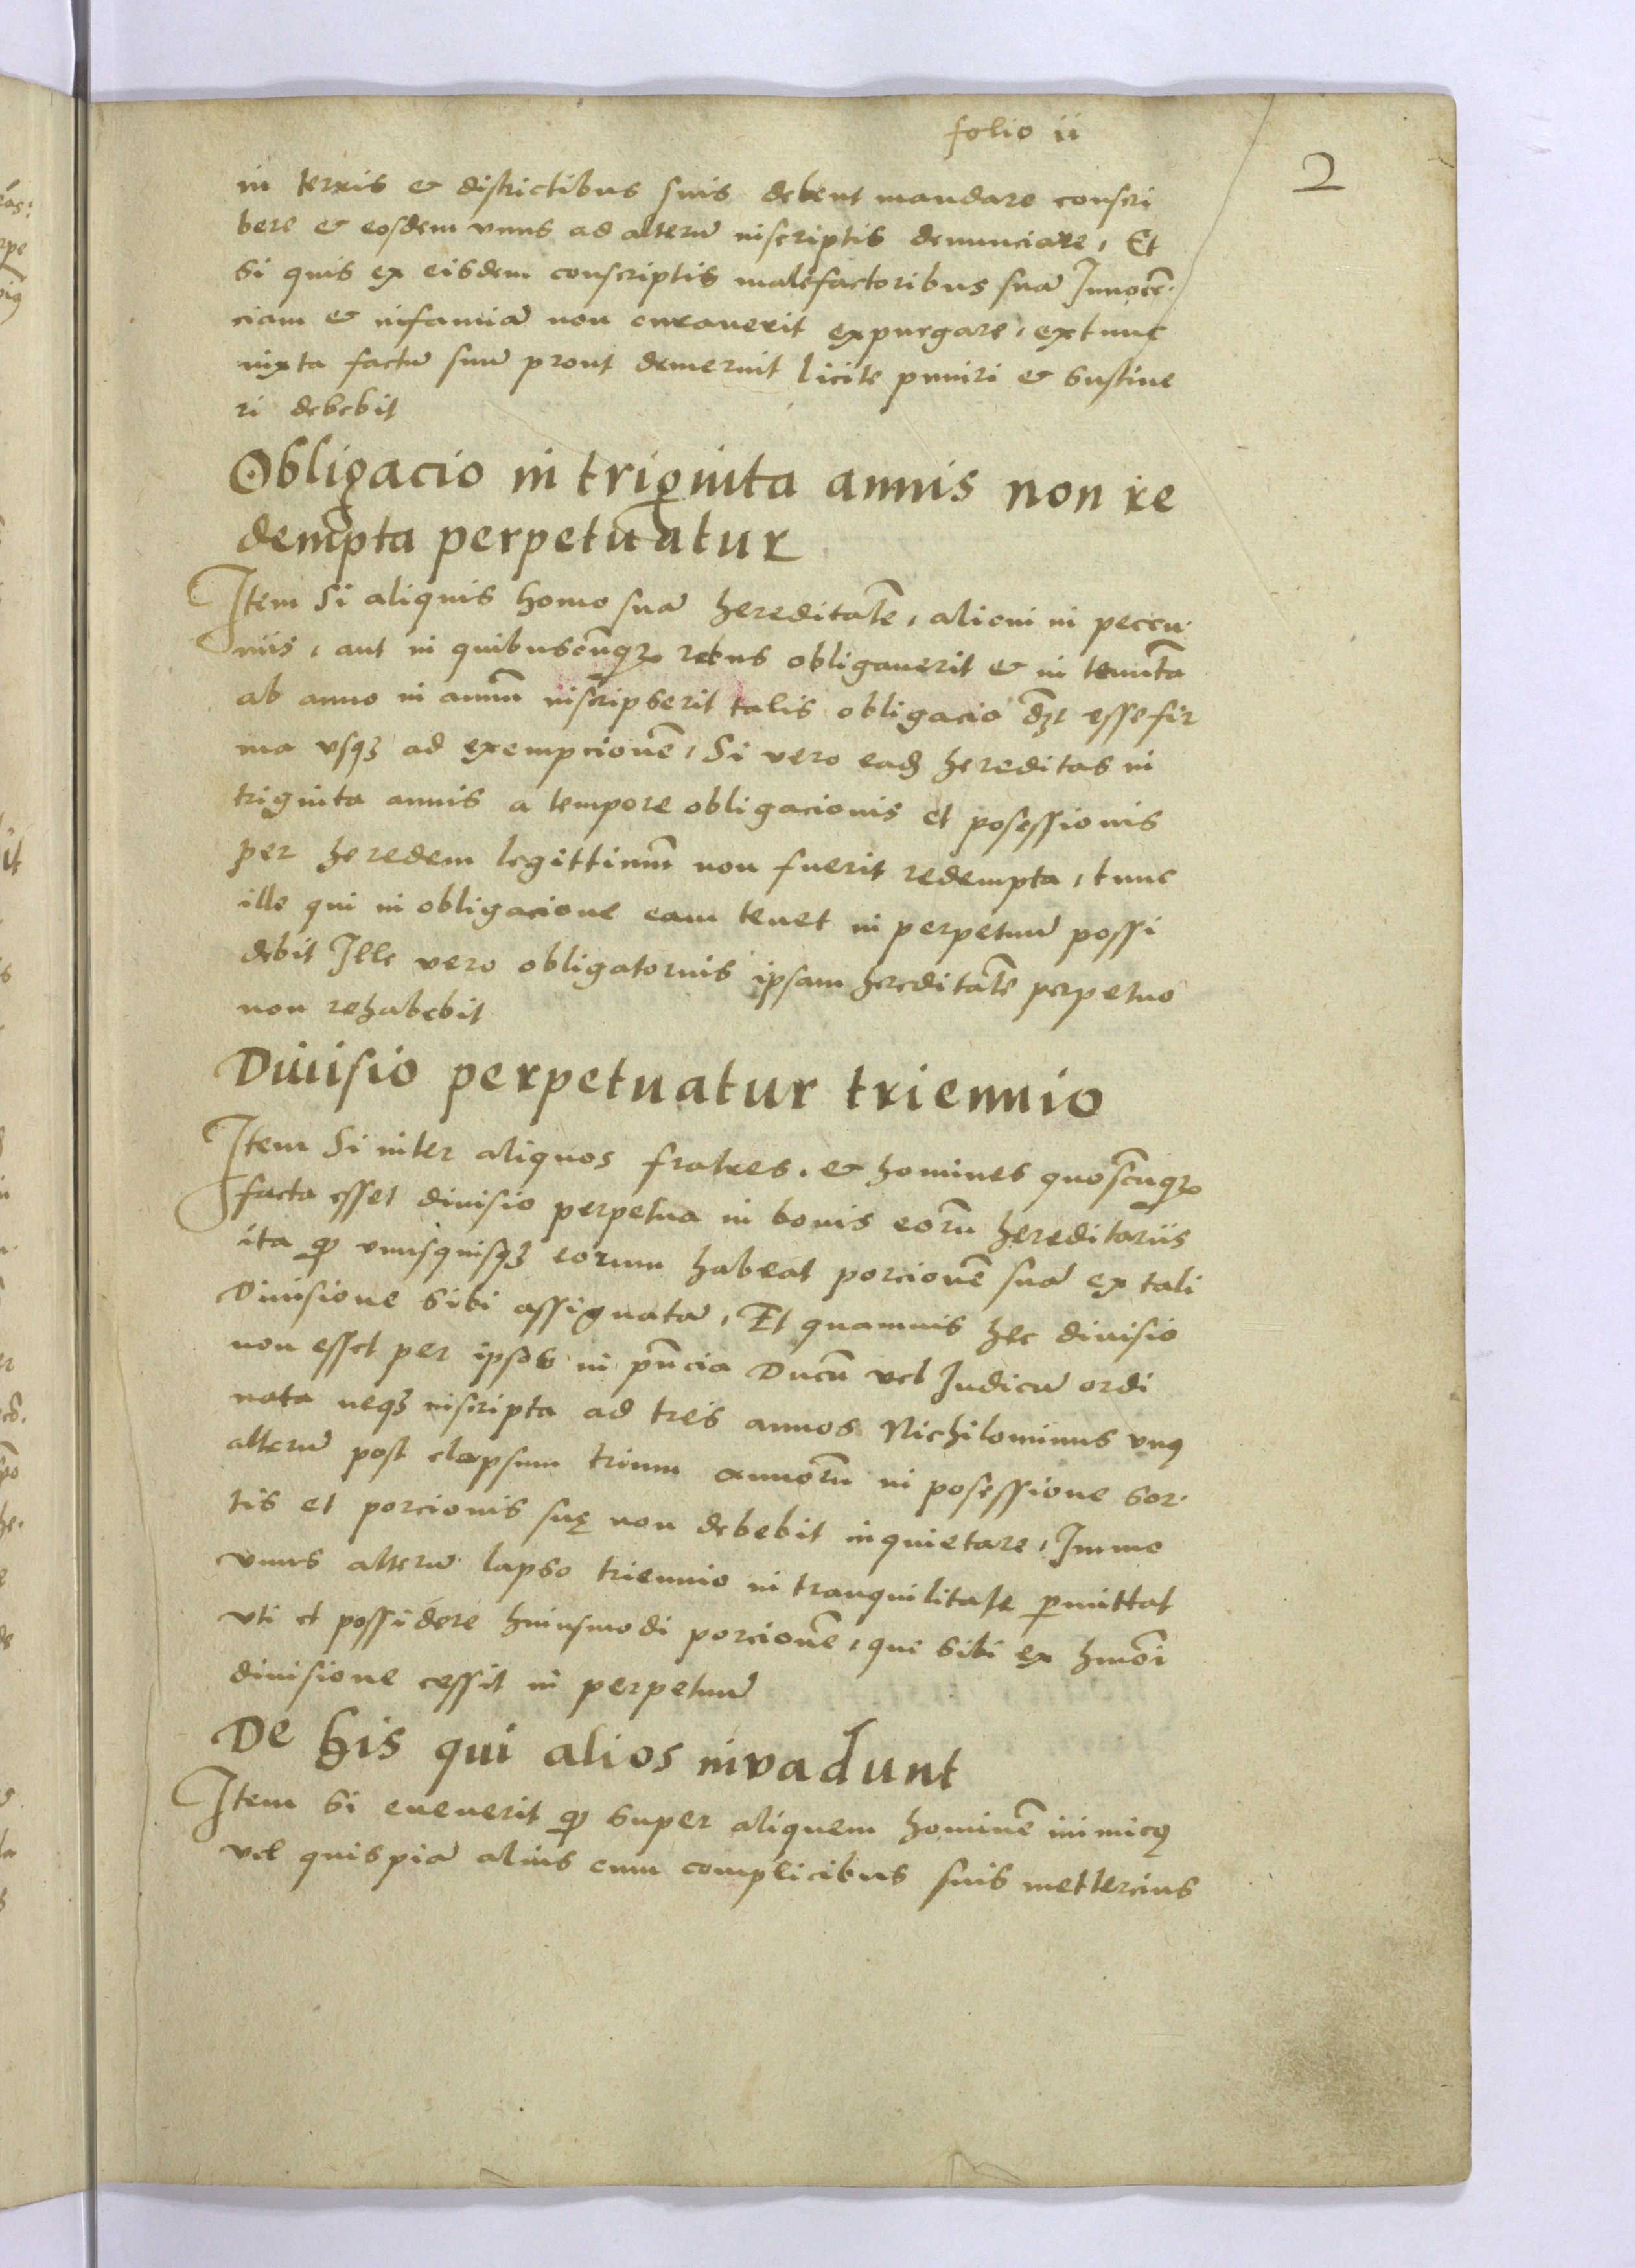 folio ii
2
in terris & districtibus suis debent mandare conscri
bere & eosdem vnus ad alterū inscriptis denunciare, Et
si quis ex eisdem conscriptis malefactoribus suā Innocē-
ciam & infamiā non curauerit expurgare, extunc
iuxta factū suū prout demeruit licite puniri & sustine
ri debebit
Obligacio in triginta annis non re
dempta perpetuatur
Item Si aliquis homo suā hereditatē, alicui in peccu-
niis, aut in quibuscūqꝫ rebus obligauerit & in tenutā
ab anno in annū inscripserit talis obligacio dꝫt esse fir
ma vsqꝫ ad exempcionē, Si vero eadē hereditas in
triginta annis a tempore obligacionis et posessionis
per heredem legittimū non fuerit redempta, tunc
ille qui in obligacione eam tenet in perpetuū possi
debit Ille vero obligatorius ipsam hereditatē perpetuo
non rehabebit
Diuisio perpetuatur triennio
Item Si inter aliquos fratres, & homines quoscūqꝫ
facta esset diuisio perpetua in bonis eorū hereditariis
ita ꝙ vnusquisqꝫ eorum habeat porcionē suā ex tali
Diuisione sibi assignatā, Et quamuis hec diuisio
non esset per ipsos in pn̄cia Ducū vel Iudicū ordi
nata neqꝫ inscripta ad tres annos Nichilominus vnꝰ
alterū post elapsum trium annorū in posessione sor-
tis et porcionis suę non debebit inquietare, Immo
vnus alterū lapso triennio in tranquilitate ꝑmittat
vti et possidere huiusmodi porcionē, que sibi ex hmōi
diuisione cessit in perpetuū
De his qui alios invadunt
Item si euenerit ꝙ super aliquem hominē inimicꝰ
vel quispiā alius cum complicibus suis mettercius